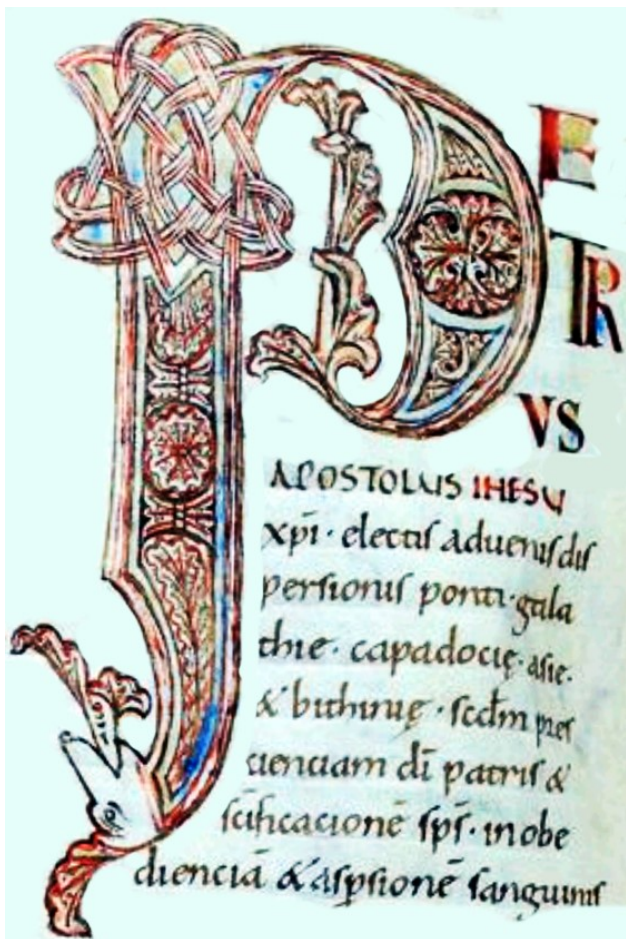 P
E
TR
VS
APOSTOLUS IHESU
xp̄i · electis aduenis dis
persionis ponti · gala
thie · capadocię · asie ·
& bithinię · scdm pres
cienciam dī patris &
scificacionē sp̄s · in obe
dienciā & aspsionē sanguinis